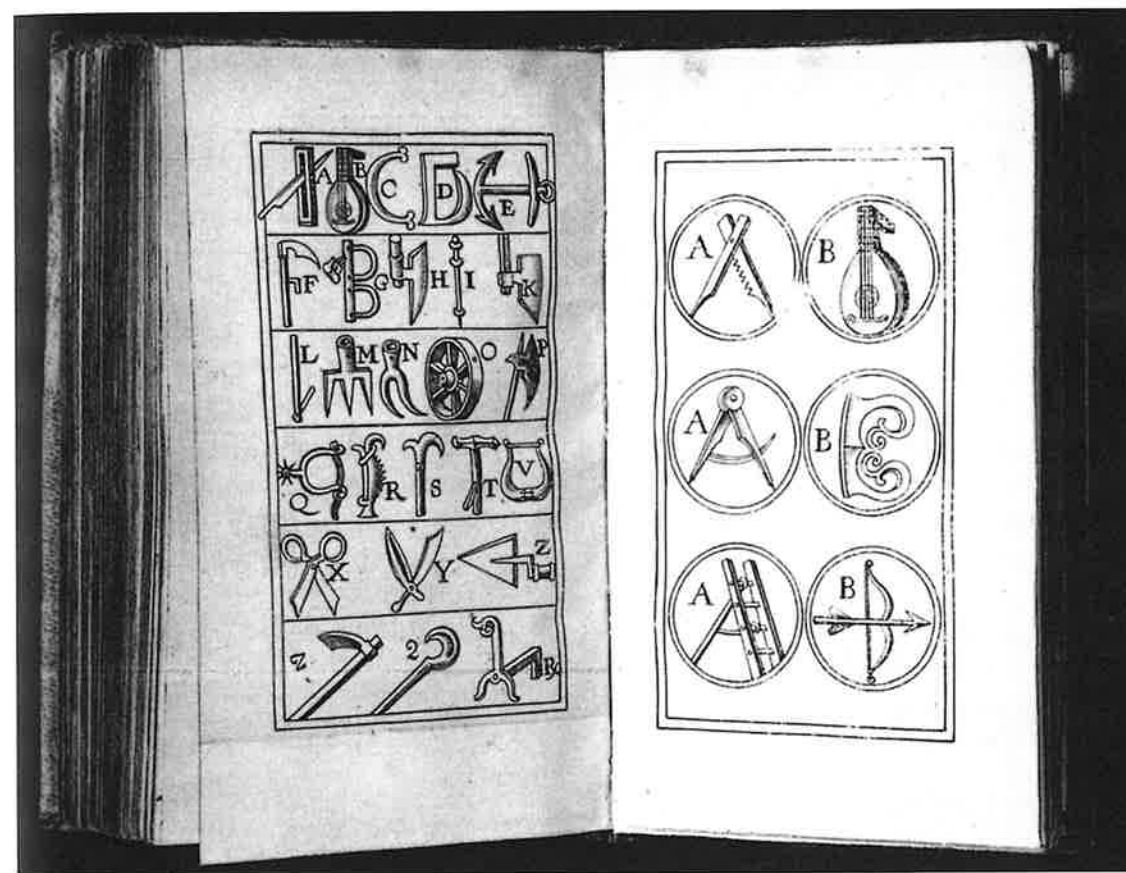 A B C D E
F G H I K
L M N O P
Q R S T V
X Y Z
Z 2 R
A B
A B
A B